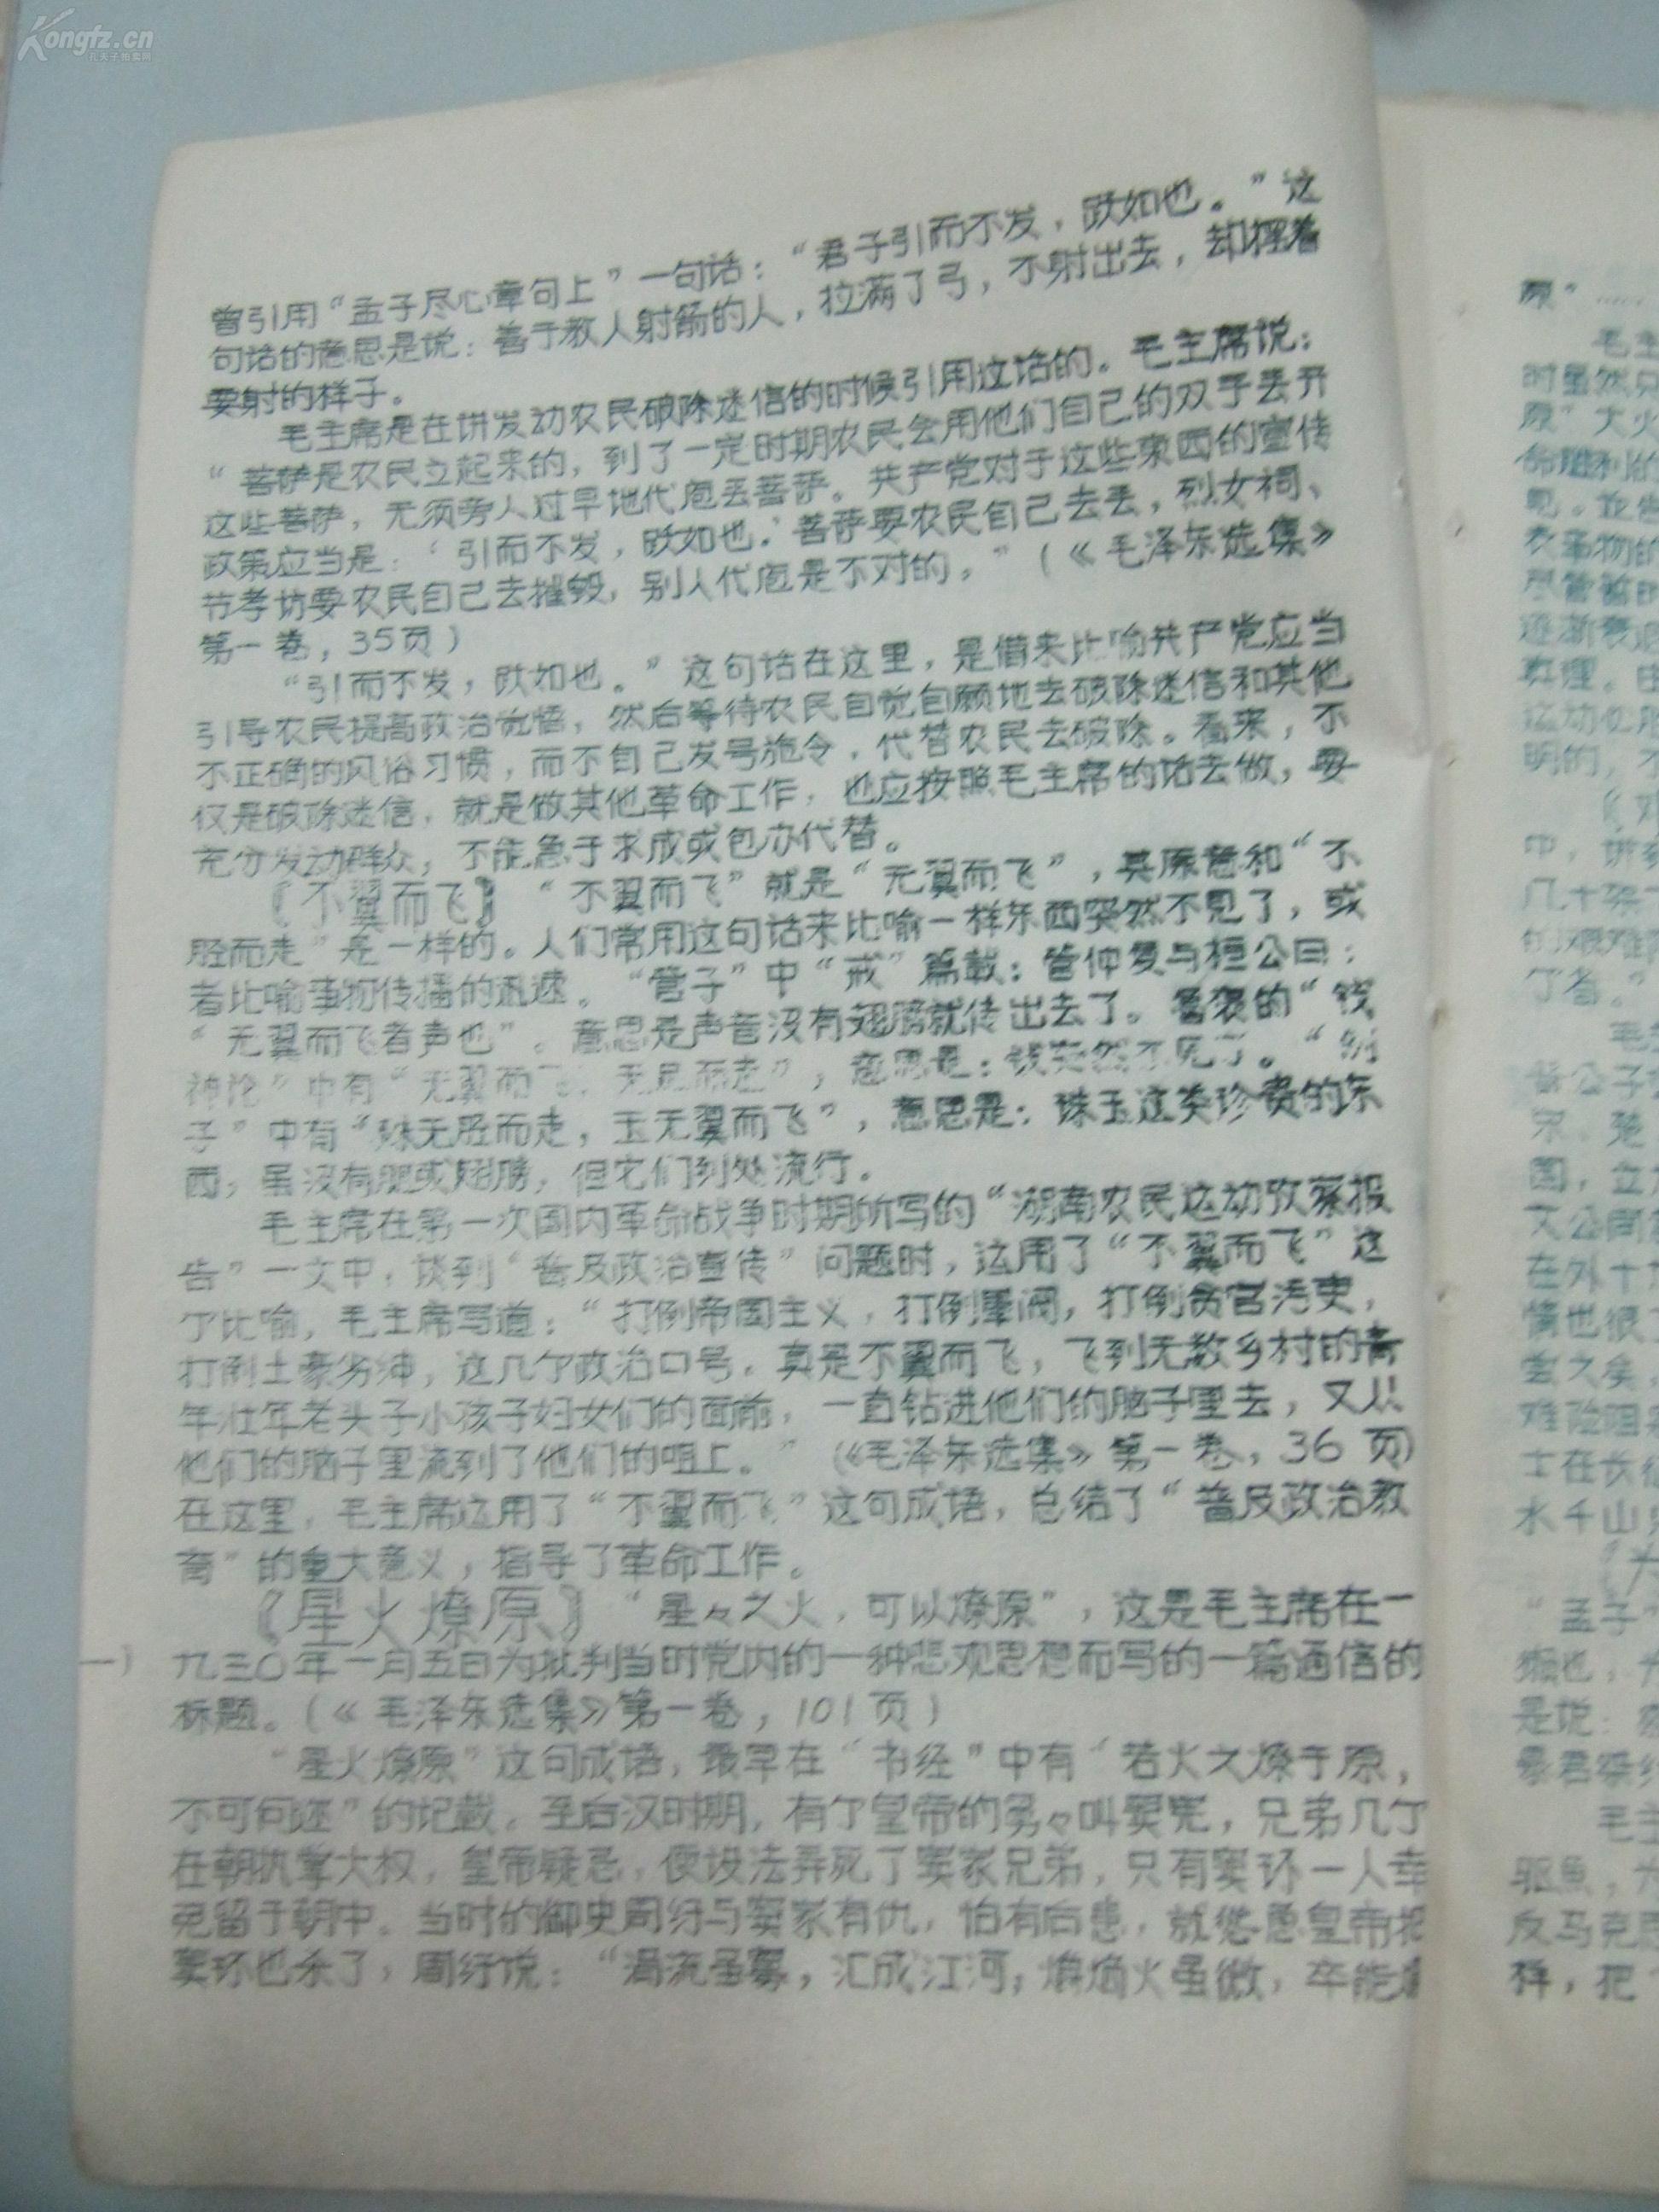 Kongfz.cn
孔夫子拍卖网
曾引用“孟子尽心章句上”一句话：“君子引而不发，跃如也。”这
句话的意思是说：善于教人射箭的人，拉满了弓，不射出去，却摆着
要射的样子。
毛主席是在讲发动农民破除迷信的时候引用这话的。毛主席说：
“菩萨是农民立起来的，到了一定时期农民会用他们自己的双手丢开
这些菩萨，无须旁人过早地代庖丢菩萨。共产党对于这些东西的宣传
政策应当是：‘引而不发，跃如也。’菩萨要农民自己去丢，烈女祠、
节孝坊要农民自己去摧毁，别人代庖是不对的。”（《毛泽东选集》
第一卷，35页）
“引而不发，跃如也。”这句话在这里，是借来比喻共产党应当
引导农民提高政治觉悟，然后等待农民自觉自愿地去破除迷信和其他
不正确的风俗习惯，而不自己发号施令，代替农民去破除。看来，不
仅是破除迷信，就是做其他革命工作，也应按照毛主席的话去做，要
充分发动群众，不能急于求成或包办代替。
〖不翼而飞〗“不翼而飞”就是“无翼而飞”，其原意和“不
胫而走”是一样的。人们常用这句话来比喻一样东西突然不见了，或
者比喻事物传播的迅速。“管子”中“戒”篇载：管仲复与桓公曰：
“无翼而飞者声也”。意思是声音没有翅膀就传出去了。鲁褒的“钱
神论”中有“无翼而飞，无足而走”，意思是：钱突然不见了。“刘
子”中有“珠无胫而走，玉无翼而飞”，意思是：珠玉这类珍贵的东
西，虽没有腿或翅膀，但它们到处流行。
毛主席在第一次国内革命战争时期所写的“湖南农民运动考察报
告”一文中，谈到“普及政治宣传”问题时，运用了“不翼而飞”这
个比喻，毛主席写道：“打倒帝国主义，打倒军阀，打倒贪官污吏，
打倒土豪劣绅，这几个政治口号，真是不翼而飞，飞到无数乡村的青
年壮年老头子小孩子妇女们的面前，一直钻进他们的脑子里去，又从
他们的脑子里流到了他们的咀上。”（《毛泽东选集》第一卷，36页）
在这里，毛主席运用了“不翼而飞”这句成语，总结了“普及政治教
育”的重大意义，指导了革命工作。
《星火燎原》“星々之火，可以燎原”，这是毛主席在一
九三〇年一月五日为批判当时党内的一种悲观思想而写的一篇通信的
标题。（《毛泽东选集》第一卷，101页）
“星火燎原”这句成语，最早在“书经”中有“若火之燎于原，
不可向迩”的记载。至后汉时期，有个皇帝的舅々叫窦宪，兄弟几个
在朝执掌大权，皇帝疑忌，便设法弄死了窦家兄弟，只有窦环一人幸
免留于朝中。当时的御史周纡与窦家有仇，怕有后患，就怂恿皇帝把
窦环也杀了，周纡说：“涓流虽寡，汇成江河；爝火虽微，卒能
原”……
毛主
时虽然只
原”大火
命胜利的
见。
衣事物的
逐渐衰
真理。由
明的，不
中，讲
几十架
个省。”
毛主
公子
宋、楚
国，立
文公周
在外十
情也很
难险阻
士在长征
水千山
“孟子”
是说：
暴君
毛主
驱鱼，
反马克思
样，把